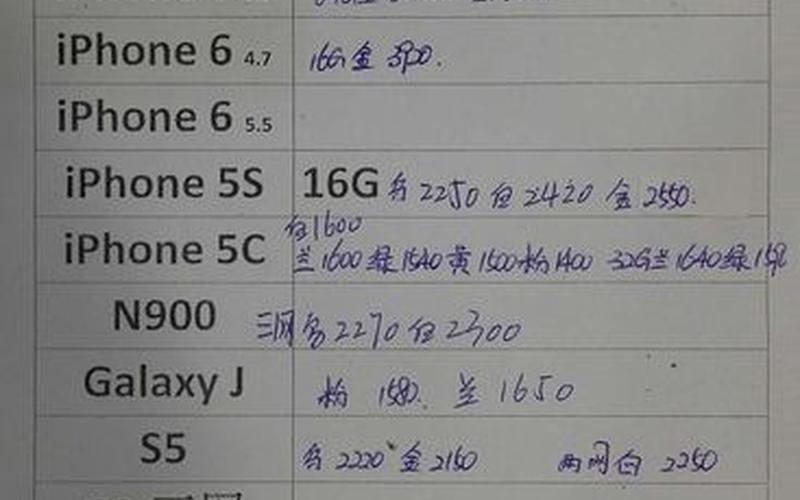 iPhone 6 4.7 16G金 3900.
iPhone 6 5.5
iPhone 5S 16G 2250 白 2420 金 2550.
白1600
iPhone 5C 兰1600绿1540黄1500粉1400 32G兰1640绿
N900 三网 2270 白 2300
Galaxy J 粉 1580. 兰 1650
S5 2220 金 2150 两网白 2250